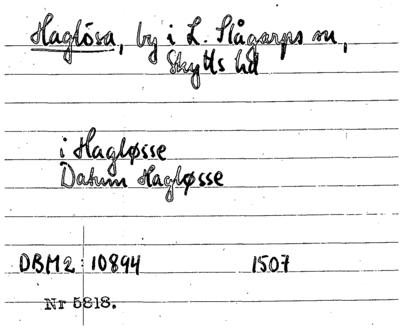 Haglösa, by i L. Slågarps sn,
Skytts hd
i Hagløsse
Datum Hagløsse
DBM2: 10894 1507
Nr 5818.